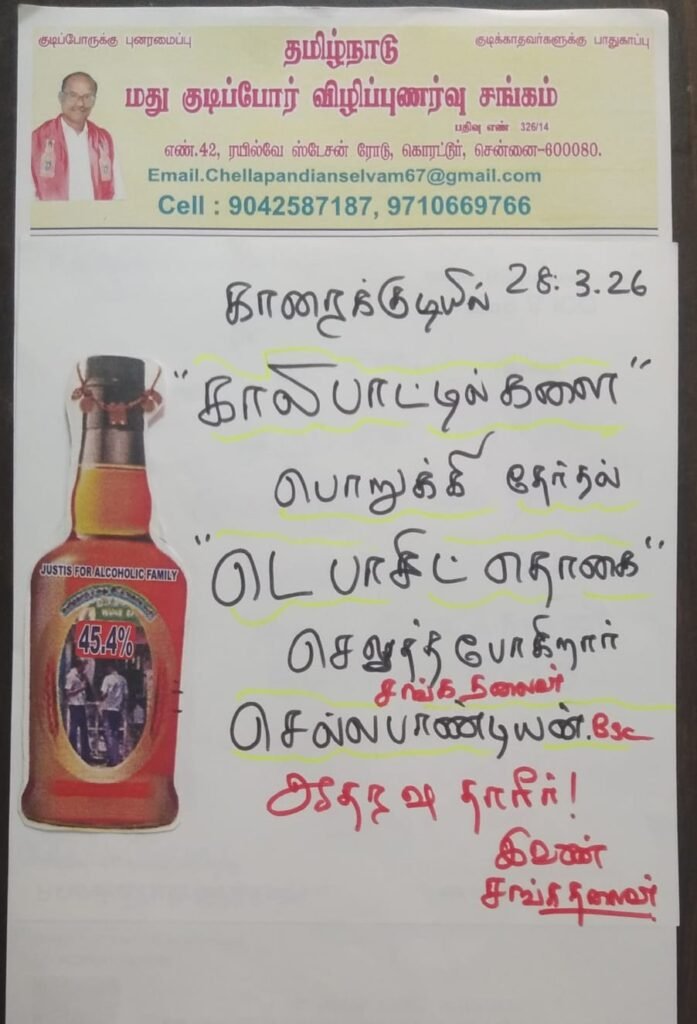 குடிப்போருக்கு புனரமைப்பு
குடிக்காதவர்களுக்கு பாதுகாப்பு
தமிழ்நாடு
மது குடிப்போர் விழிப்புணர்வு சங்கம்
பதிவு எண் 326/14
எண்.42, ரயில்வே ஸ்டேசன் ரோடு, கொரட்டூர், சென்னை-600080.
Email.Chellapandianselvam67@gmail.com
Cell : 9042587187, 9710669766
காரைக்குடியில் 28.3.26
"காலி பாட்டில்களை"
பொறுக்கி தேர்தல்
"டெபாசிட் தொகை"
செலுத்த போகிறார்
சங்க தலைவர்
செல்லபாண்டியன்.Bsc
ஆதரவு தாரீர்!
இவண்
சங்கதலைவர்
JUSTIS FOR ALCOHOLIC FAMILY
45.4%